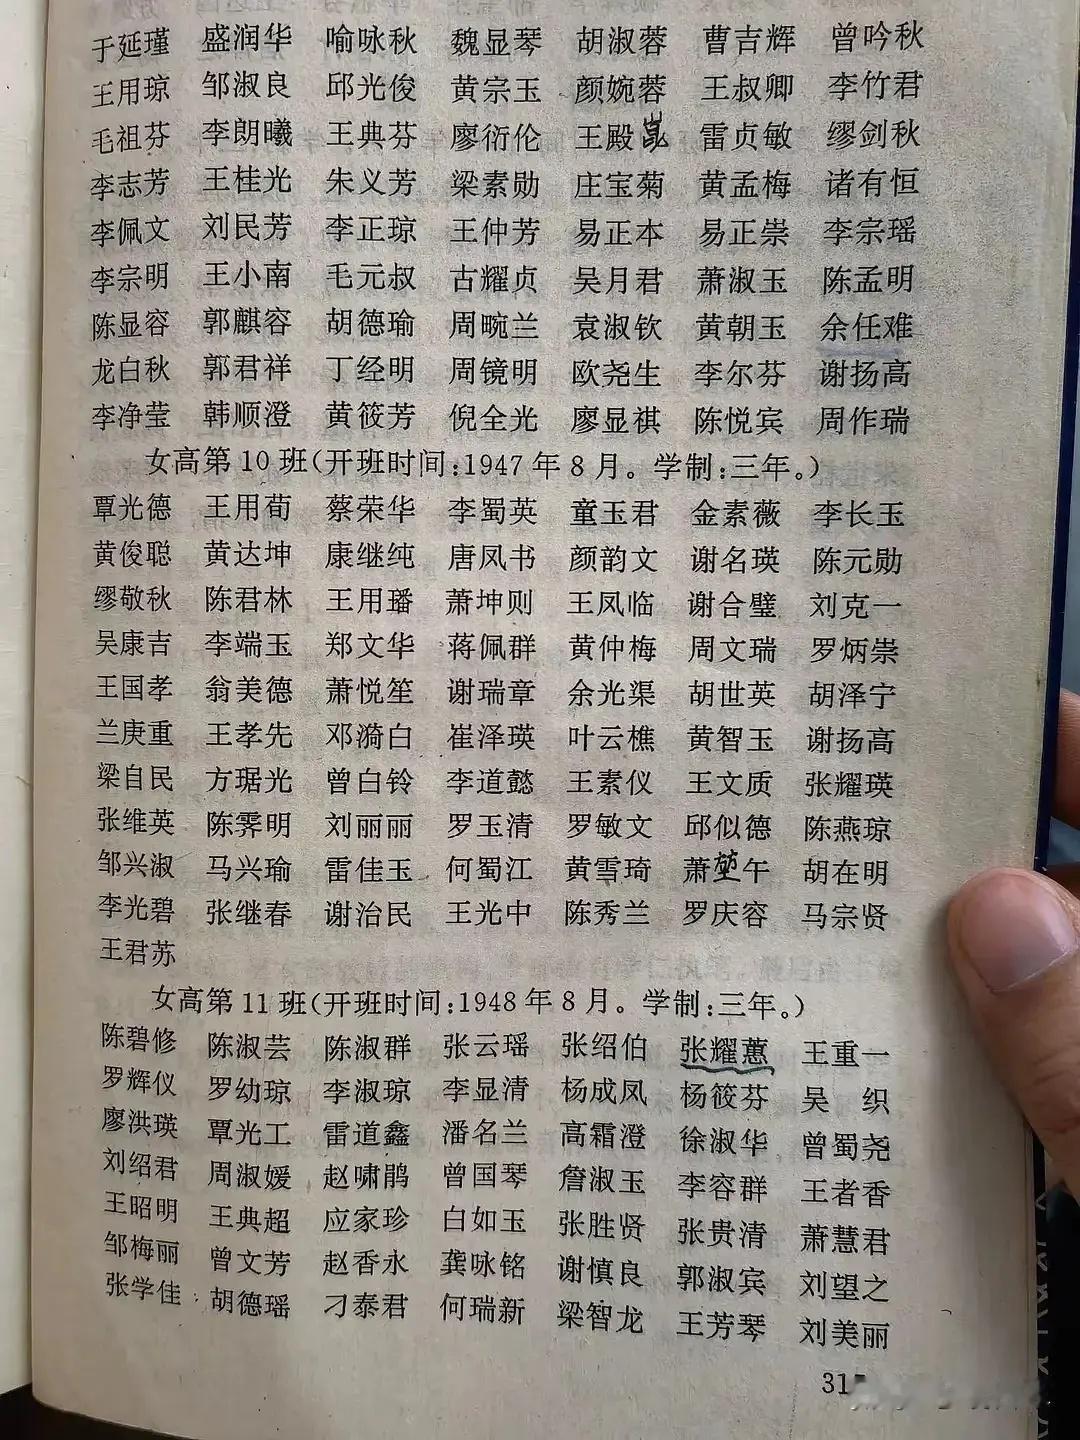 于延瑾 盛润华 喻咏秋 魏显琴 胡淑蓉 曹吉辉 曾吟秋
王用琼 邹淑良 邱光俊 黄宗玉 颜婉蓉 王叔卿 李竹君
毛祖芬 李朗曦 王典芬 廖衍伦 王殿 雷贞敏 缪剑秋
李志芳 王桂光 朱义芳 梁素勋 庄宝菊 黄孟梅 诸有恒
李佩文 刘民芳 李正琼 王仲芳 易正本 易正崇 李宗瑶
李宗明 王小南 毛元叔 古耀贞 吴月君 萧淑玉 陈孟明
陈显容 郭麒容 胡德瑜 周畹兰 袁淑钦 黄朝玉 余任难
龙白秋 郭君祥 丁经明 周镜明 欧尧生 李尔芬 谢扬高
李净莹 韩顺澄 黄筱芳 倪全光 廖显祺 陈悦宾 周作瑞
女高第10班(开班时间:1947年8月。学制:三年。)
覃光德 王用荀 蔡荣华 李蜀英 童玉君 金素薇 李长玉
黄俊聪 黄达坤 康继纯 唐凤书 颜韵文 谢名瑛 陈元勋
缪敬秋 陈君林 王用璠 萧坤则 王凤临 谢合璧 刘克一
吴康吉 李端玉 郑文华 蒋佩群 黄仲梅 周文瑞 罗炳崇
王国孝 翁美德 萧悦笙 谢瑞章 余光渠 胡世英 胡泽宁
兰庚重 王孝先 邓漪白 崔泽瑛 叶云樵 黄智玉 谢扬高
梁自民 方琚光 曾白铃 李道懿 王素仪 王文质 张耀瑛
张维英 陈霁明 刘丽丽 罗玉清 罗敏文 邱似德 陈燕琼
邹兴淑 马兴瑜 雷佳玉 何蜀江 黄雪琦 萧堃午 胡在明
李光碧 张继春 谢治民 王光中 陈秀兰 罗庆容 马宗贤
王君苏
女高第11班(开班时间:1948年8月。学制:三年。)
陈碧修 陈淑芸 陈淑群 张云瑶 张绍伯 张耀蕙 王重一
罗辉仪 罗幼琼 李淑琼 李显清 杨成凤 杨筱芬 吴 织
廖洪瑛 覃光工 雷道鑫 潘名兰 高霜澄 徐淑华 曾蜀尧
刘绍君 周淑媛 赵啸鹃 曾国琴 詹淑玉 李容群 王者香
王昭明 王典超 应家珍 白如玉 张胜贤 张贵清 萧慧君
邹梅丽 曾文芳 赵香永 龚咏铭 谢慎良 郭淑宾 刘望之
张学佳 胡德瑶 刁泰君 何瑞新 梁智龙 王芳琴 刘美丽
31